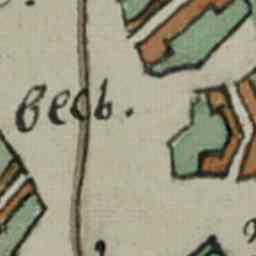 весь.